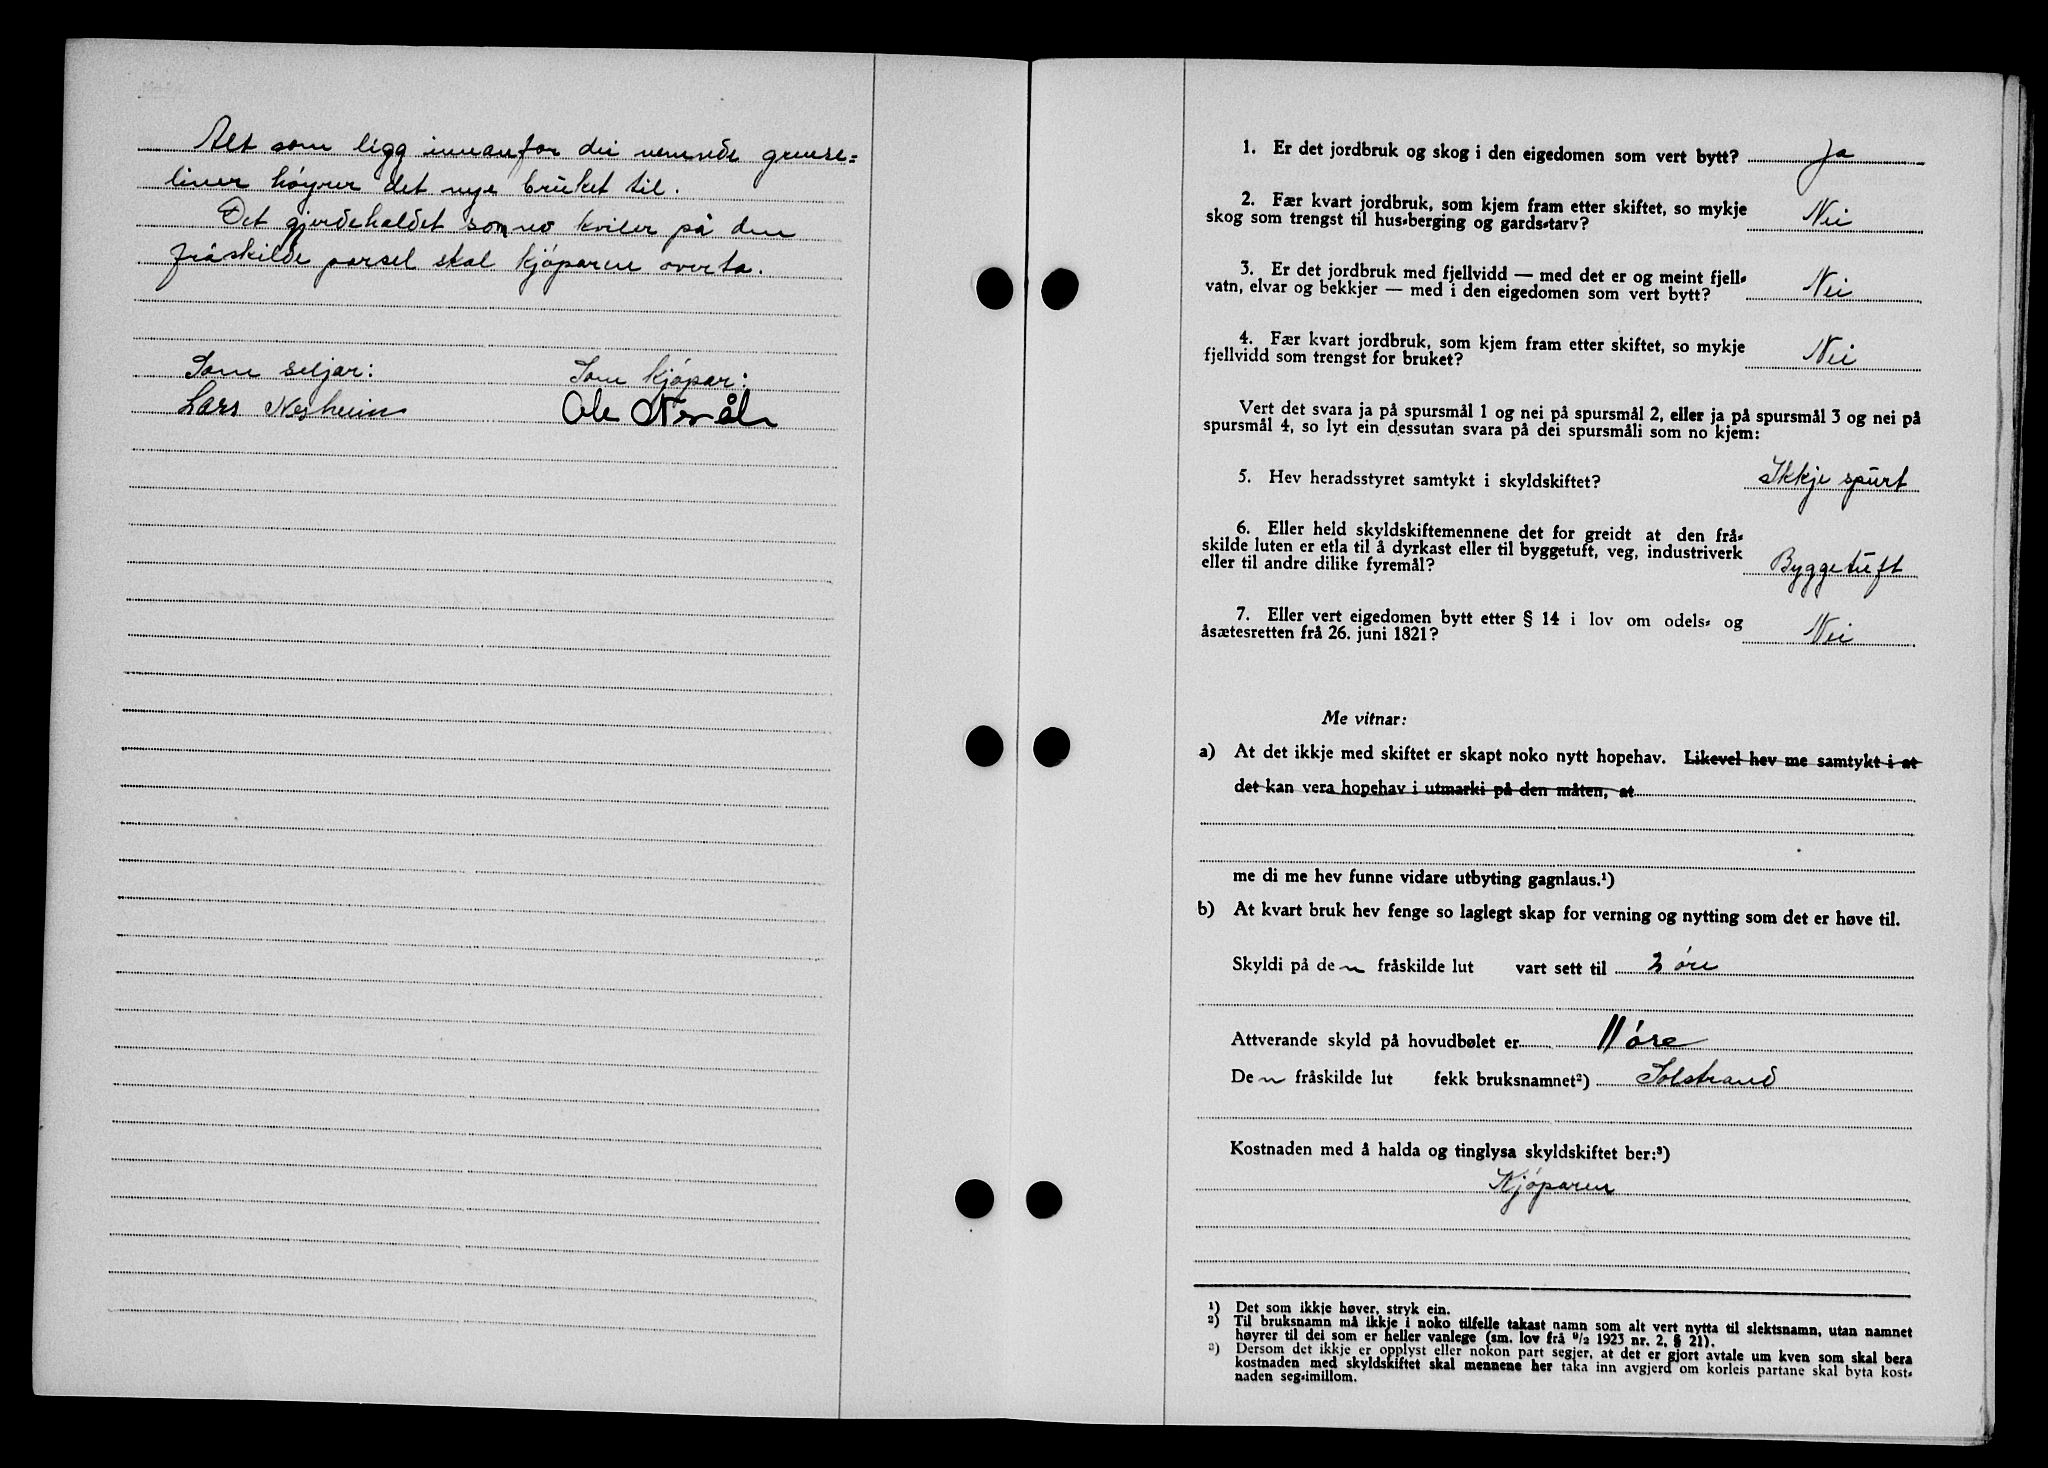 Alt som ligg innanfor dei nemnde grense=
liner høyrer det nye bruket til.
Det gjerdehaldet som no kviler på den
fråskilde parsel skal kjøparen overta.
Som seljar:    Som kjøpar:
Lars Nesheim    Ole
1. Er det jordbruk og skog i den eigedomen som vert bytt? Ja
2. Fær kvart jordbruk, som kjem fram etter skiftet, so mykje
skog som trengst til hus-berging og gards-tarv? Nei
3. Er det jordbruk med fjellvidd — med det er og meint fjell-
vatn, elvar og bekkjer — med i den eigedomen som vert bytt? Nei
4. Fær kvart jordbruk, som kjem fram etter skiftet, so mykje
fjellvidd som trengst for bruket? Nei
Vert det svara ja på spursmål 1 og nei på spursmål 2, eller ja på spursmål 3 og nei på
spursmål 4, so lyt ein dessutan svara på dei spursmåli som no kjem:
5. Hev heradsstyret samtykt i skyldskiftet? Ikkje spurt
6. Eller held skyldskiftemennene det for greidt at den frå-
skilde luten er etla til å dyrkast eller til byggetuft, veg, industriverk
eller til andre dilike fyremål? Byggetuft
7. Eller vert eigedomen bytt etter § 14 i lov om odels- og
åsætesretten frå 26. juni 1821? Nei
Me vitnar:
a) At det ikkje med skiftet er skapt noko nytt hopehav. Likevel hev me samtykt i at
det kan vera hopehav i utmarki på den måten, at
me di me hev funne vidare utbyting gagnlaus.¹)
b) At kvart bruk hev fenge so laglegt skap for verning og nytting som det er høve til.
Skyldi på den fråskilde lut vart sett til 2 øre
Attverande skyld på hovudbølet er 11 øre
Den fråskilde lut fekk bruksnamnet²) Solstrand
Kostnaden med å halda og tinglysa skyldskiftet ber:³)
Kjøparen
¹) Det som ikkje høver, stryk ein.
²) Til bruksnamn må ikkje i noko tilfelle takast namn som alt vert nytta til slektsnamn, utan namnet
høyrer til dei som er heller vanlege (sm. lov frå ⁹/₂ 1923 nr. 2, § 21).
³) Dersom det ikkje er opplyst eller nokon part segjer, at det er gjort avtale um kven som skal bera
kostnaden med skyldskiftet skal mennene her taka inn avgjerd om korleis partane skal byta kost-
naden seg-imillom.